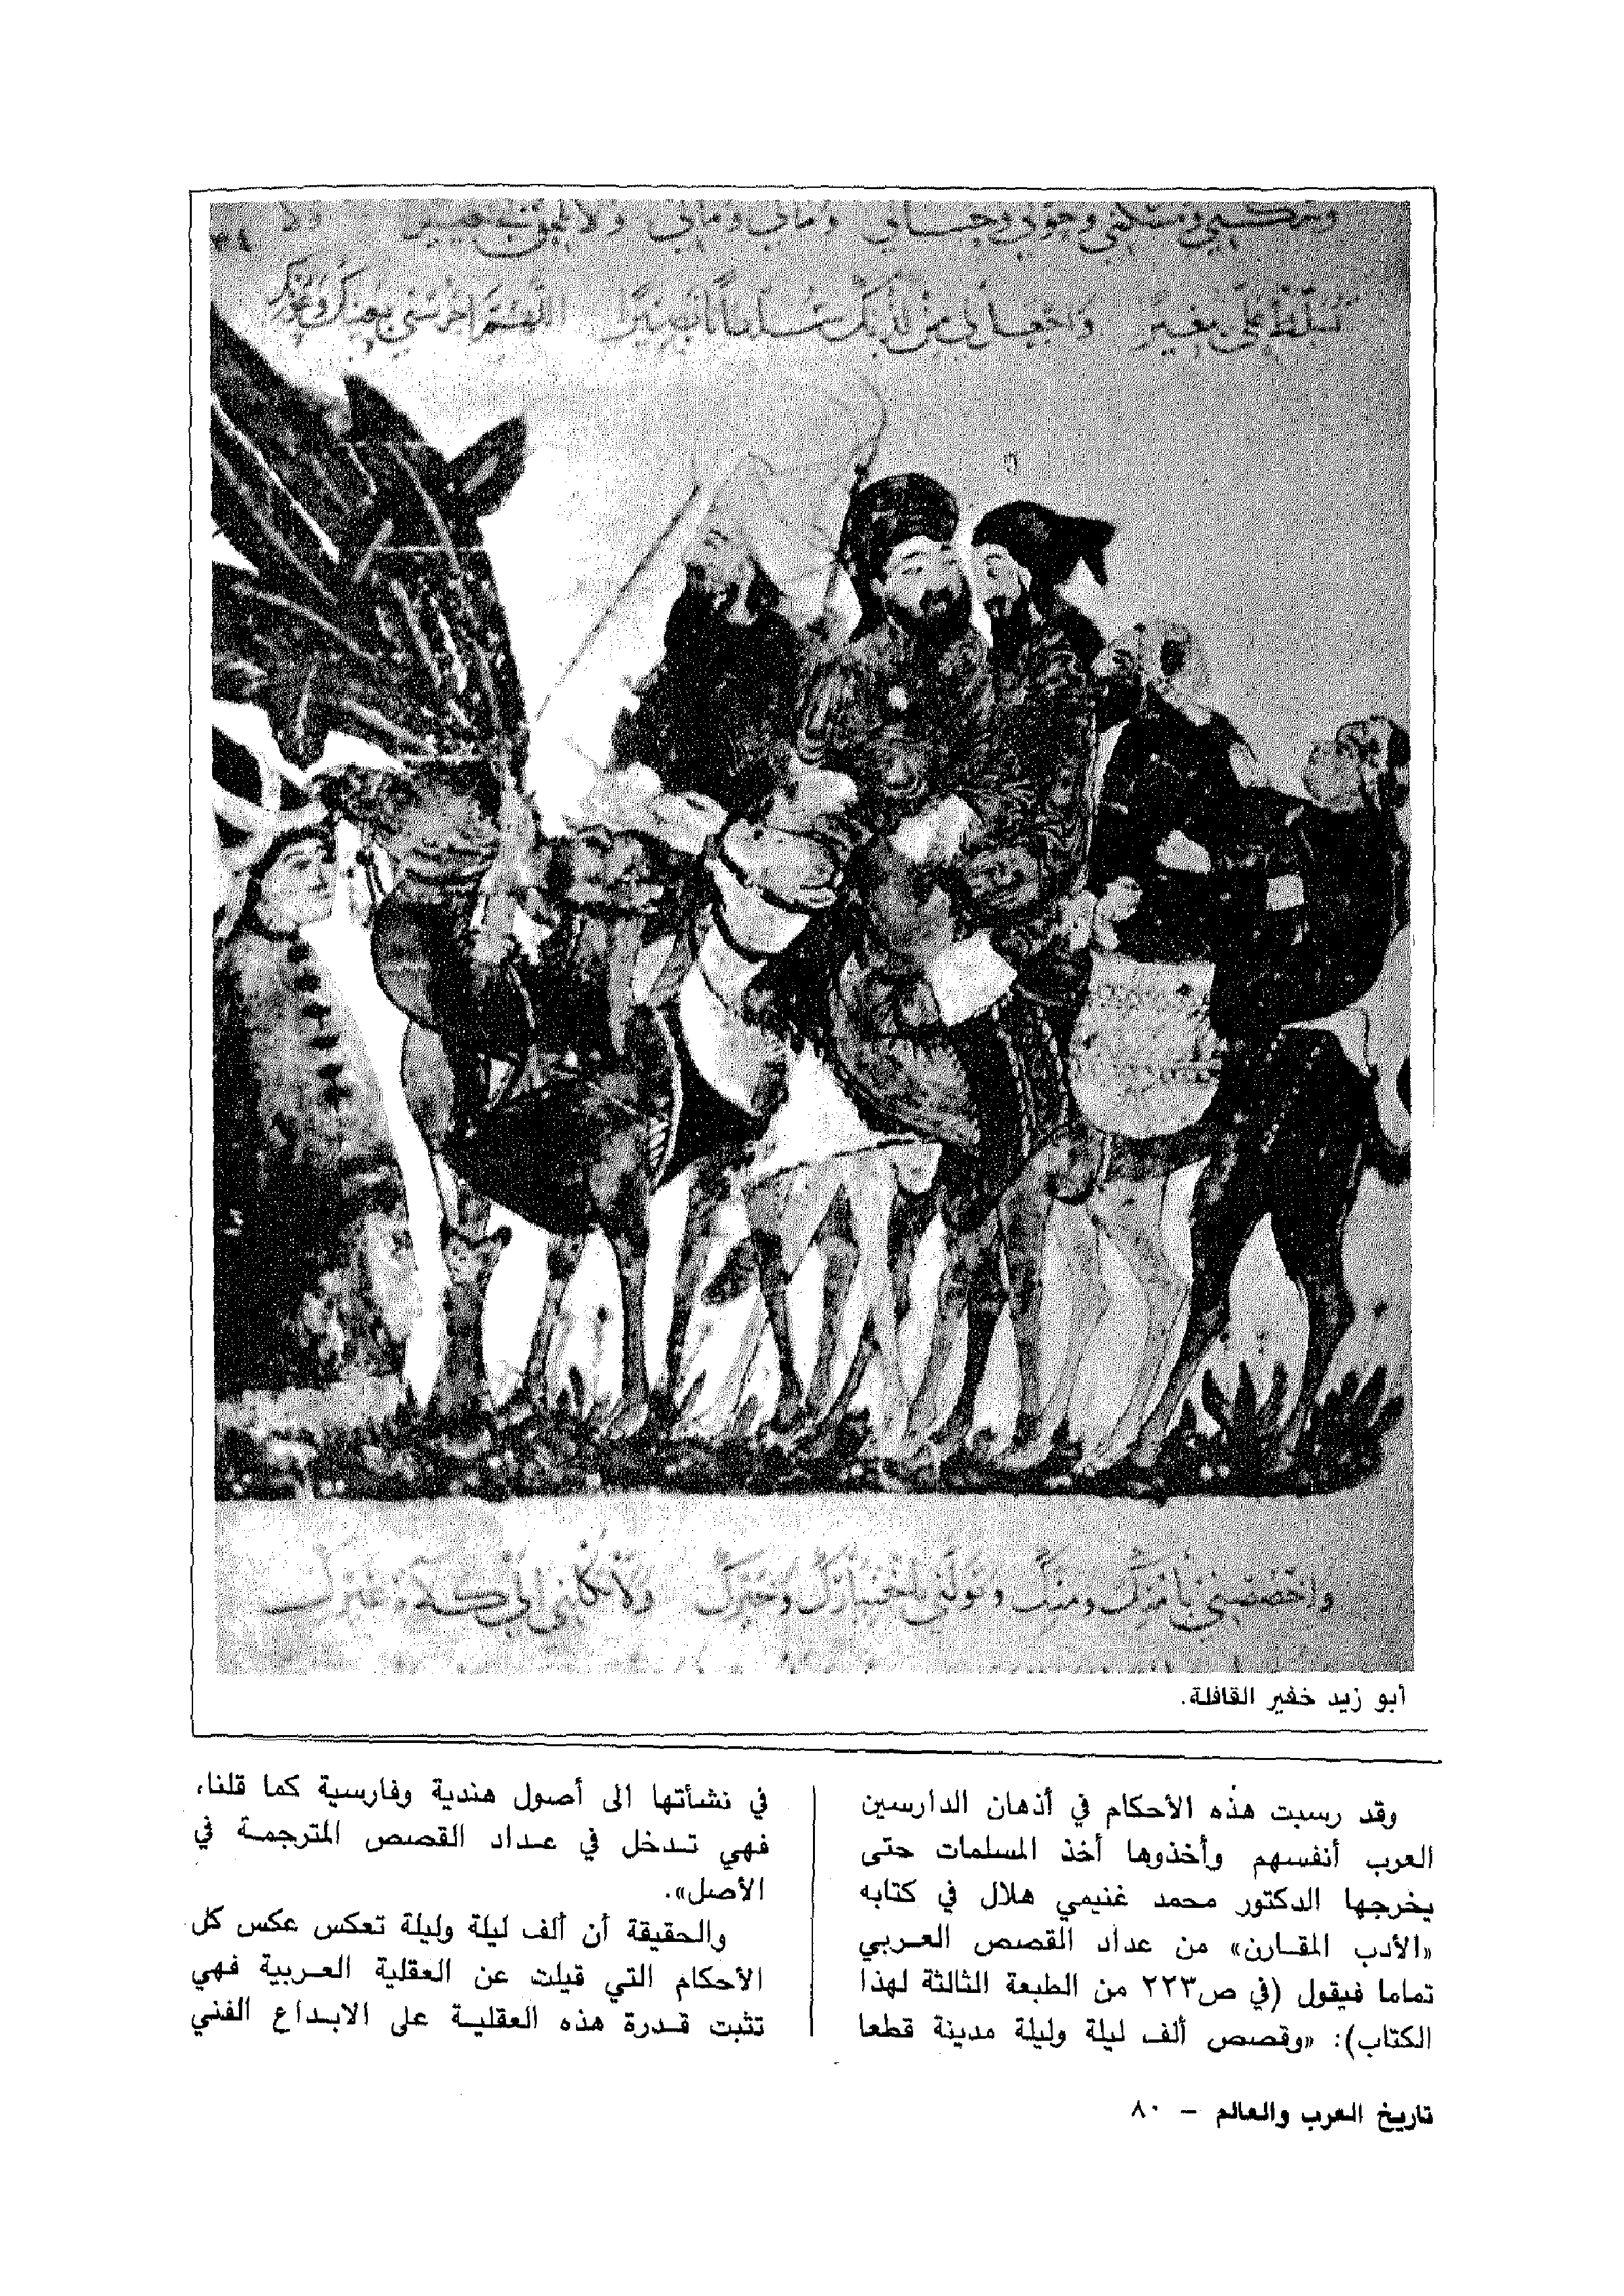 واجعل لي من لدنك سلطانا نصيرا اللهم احرسني بعينك
واخصصني بأمنك ومنك وتولني باختيارك وخيرك ولا تكلني الى كلاءة غيرك
أبو زيد خفير القافلة.
وقد رسبت هذه الأحكام في أذهان الدارسين
العرب أنفسهم وأخذوها أخذ المسلمات حتى
يخرجها الدكتور محمد غنيمي هلال في كتابه
«الأدب المقارن» من عداد القصص العربي
تماما فيقول (في ص٢٢٣ من الطبعة الثالثة لهذا
الكتاب): «وقصص ألف ليلة وليلة مدينة قطعا
في نشأتها الى أصول هندية وفارسية كما قلنا،
فهي تدخل في عداد القصص المترجمة في
الأصل».
والحقيقة أن ألف ليلة وليلة تعكس عكس كل
الأحكام التي قيلت عن العقلية العربية فهي
تثبت قدرة هذه العقلية على الابداع الفني
تاريخ العرب والعالم – ٨٠